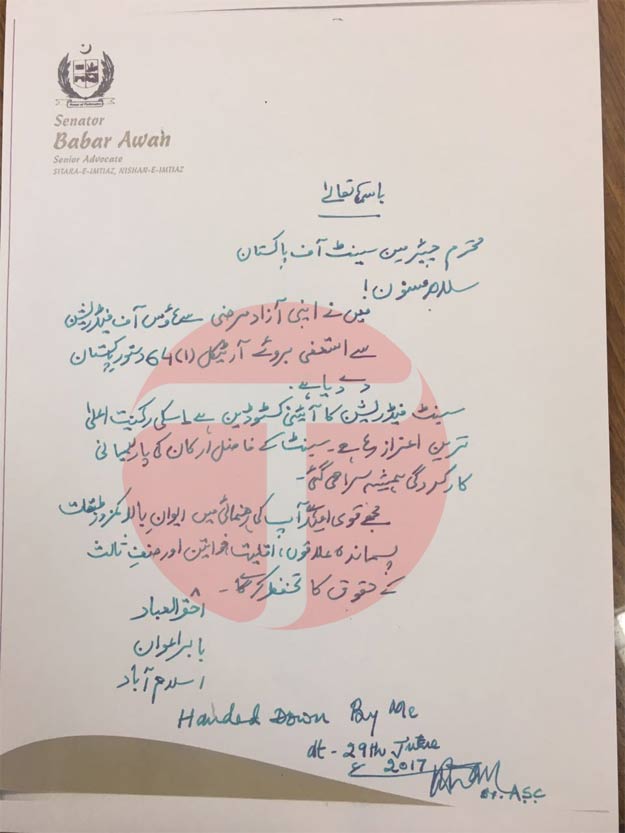 Senator
Babar Awan
Senior Advocate
SITARA-E-IMTIAZ, NISHAN-E-IMTIAZ
باسمہٖ تعالےٰ
محترم چیئرمین سینٹ آف پاکستان
سلام مسنون!
میں نے اپنی آزاد مرضی سے ہاؤس آف فیڈریشن
سے استعفیٰ بروئے آرٹیکل 64(1) دستور پاکستان
دے دیا ہے۔
سینٹ فیڈریشن کا آئینی کسٹوڈین ہے اسکی رکنیت اعلیٰ
ترین اعزاز رہا ہے۔ سینٹ کے فاضل ارکان کی پارلیمانی
کارکردگی ہمیشہ سراہی گئی۔
مجھے قوی امید آپ کی رہنمائی میں ایوانِ بالا کمزور طبقات
پسماندہ علاقوں، اقلیت، خواتین اور صنفِ ثالث
کے حقوق کا تحفظ کرے گا۔
احقر العباد
بابر اعوان
اسلام آباد
Handed Down By Me
dt - 29th June
2017
ASC